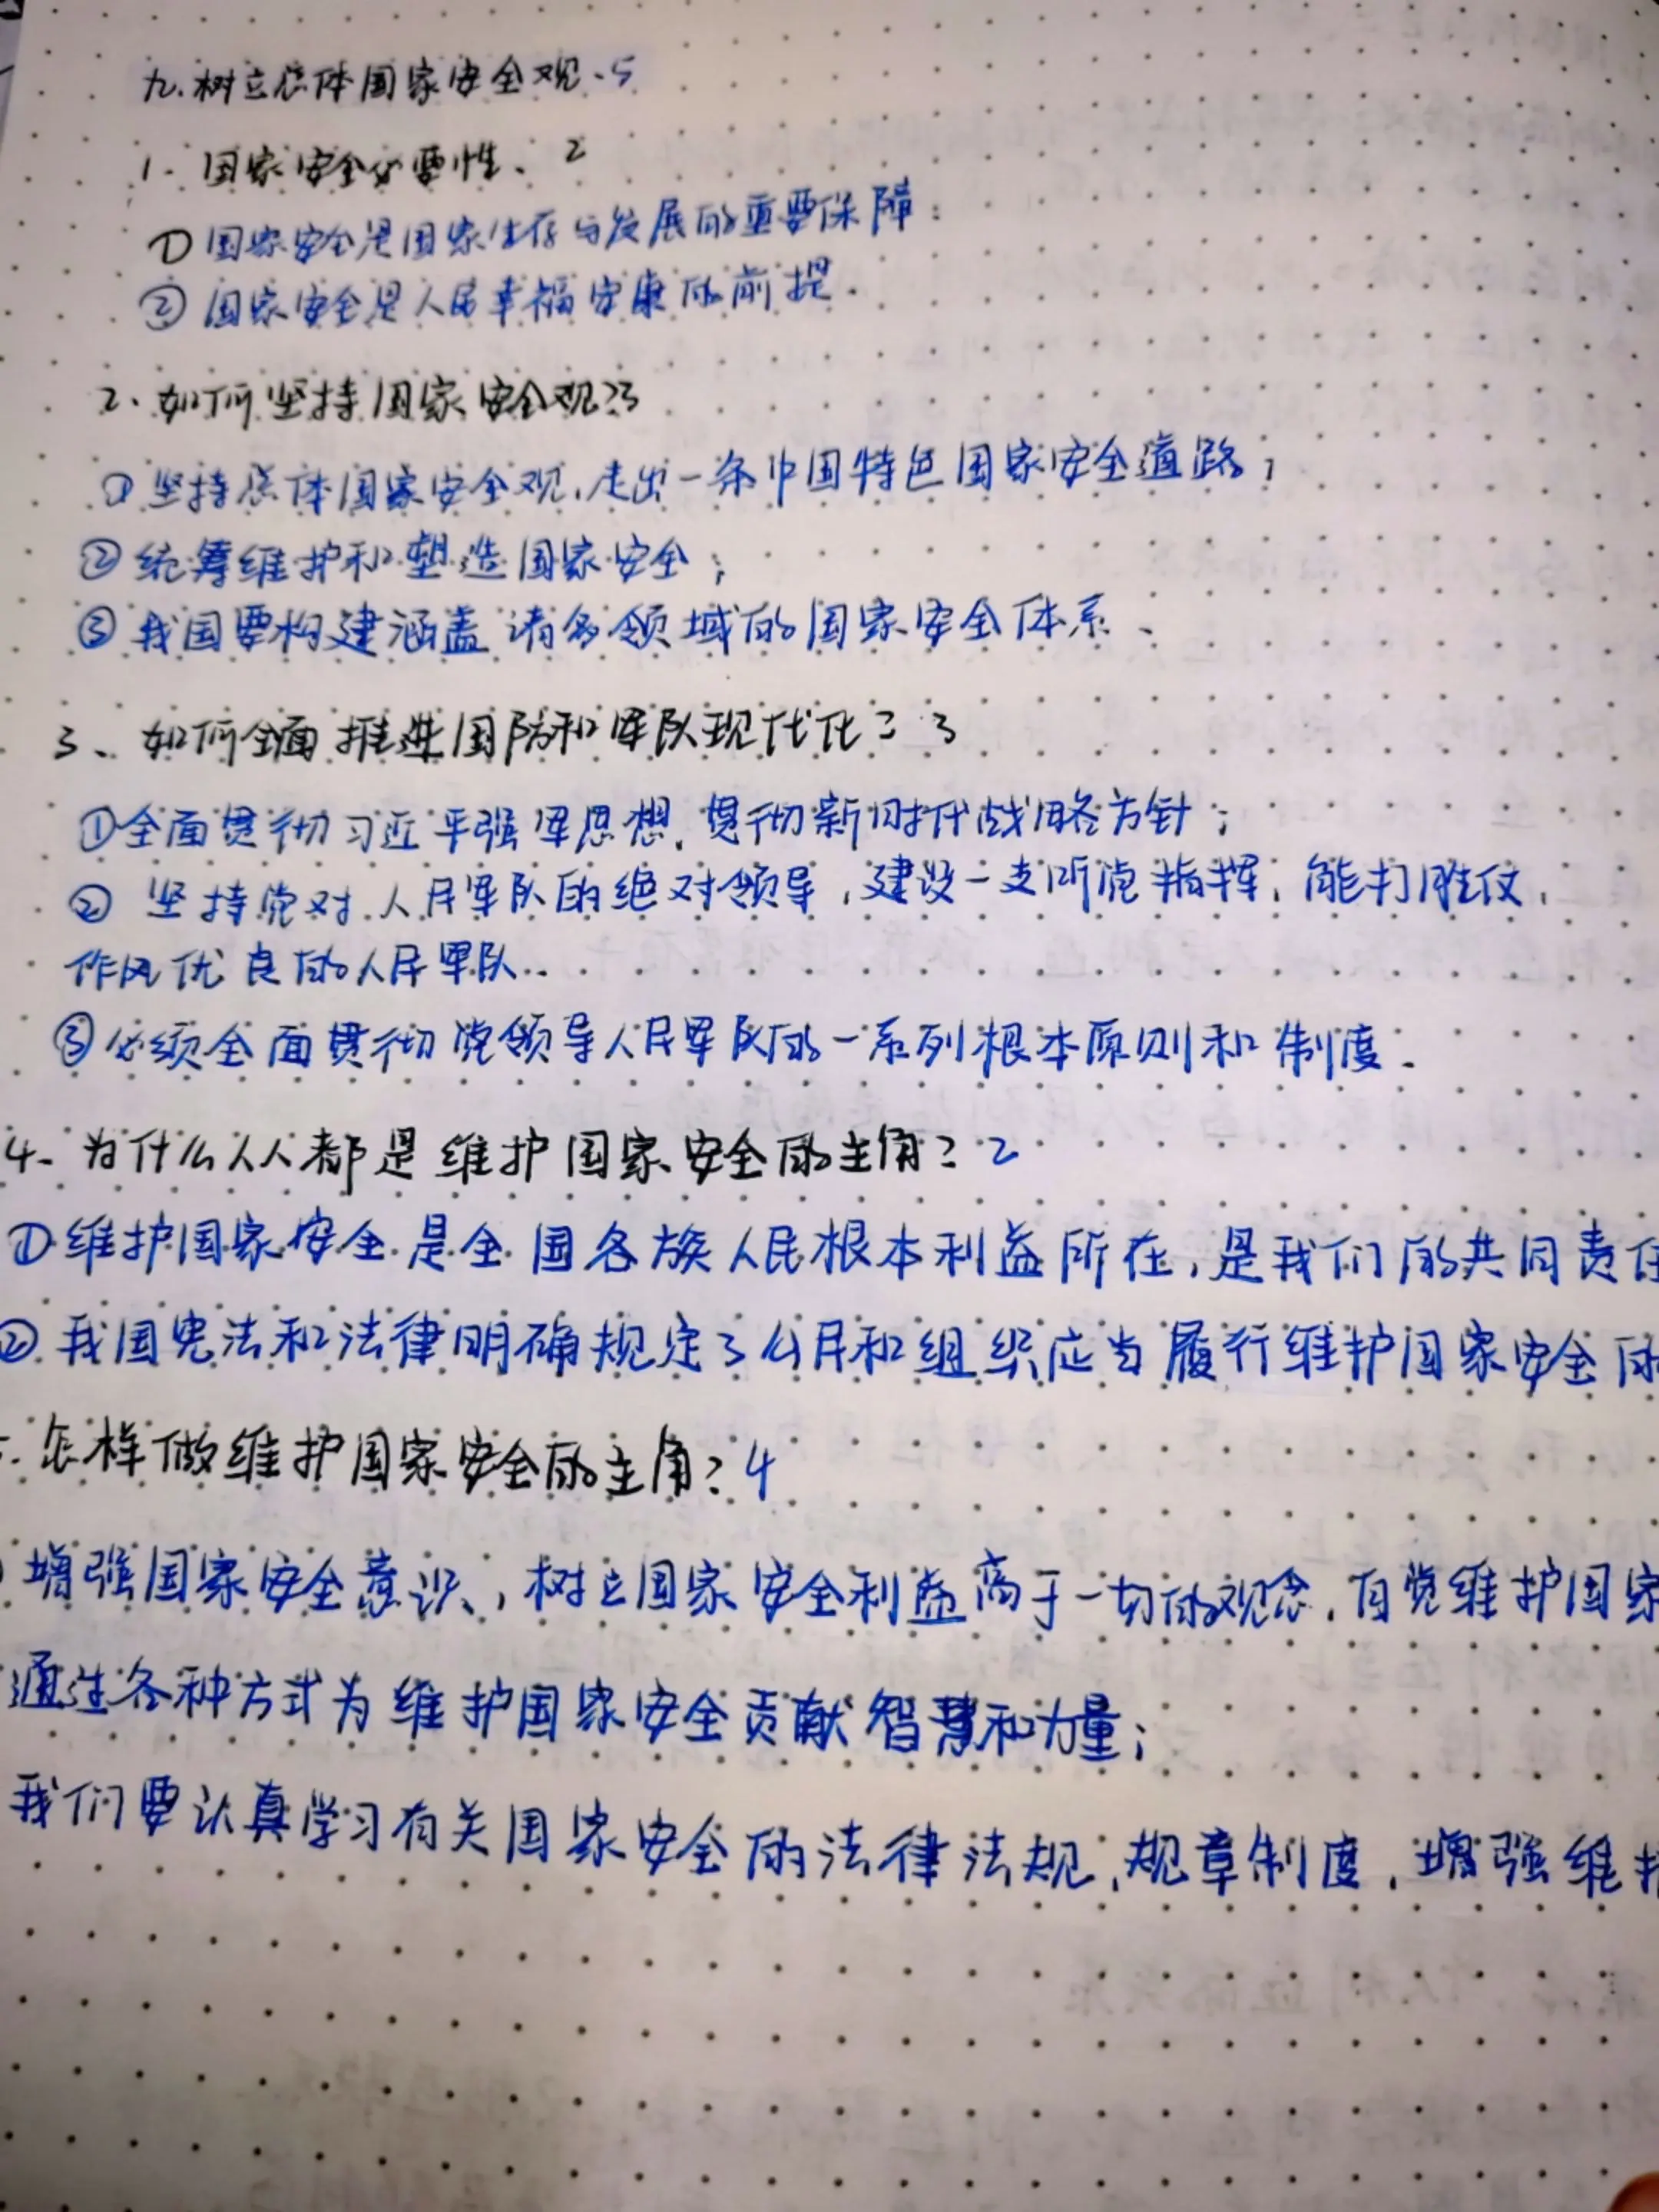 九.树立总体国家安全观.5
1. 国家安全必要性、2
①国家安全是国家生存与发展的重要保障.
②国家安全是人民幸福安康的前提.
2. 如何坚持国家安全观?3
①坚持总体国家安全观,走出一条中国特色国家安全道路;
②统筹维护和塑造国家安全;
③我国要构建涵盖诸多领域的国家安全体系、
3、如何全面推进国防和军队现代化?3
①全面贯彻习近平强军思想,贯彻新时代战略方针;
② 坚持党对人民军队的绝对领导,建设一支听党指挥,能打胜仗,
作风优良的人民军队.
③必须全面贯彻党领导人民军队的一系列根本原则和制度.
4. 为什么人人都是维护国家安全的主角?2
①维护国家安全是全国各族人民根本利益所在,是我们的共同责任
②我国宪法和法律明确规定了公民和组织应当履行维护国家安全的
.怎样做维护国家安全的主角?4
增强国家安全意识,树立国家安全利益高于一切的观念,自觉维护国家
通过各种方式为维护国家安全贡献智慧和力量;
我们要认真学习有关国家安全的法律法规,规章制度,增强维护